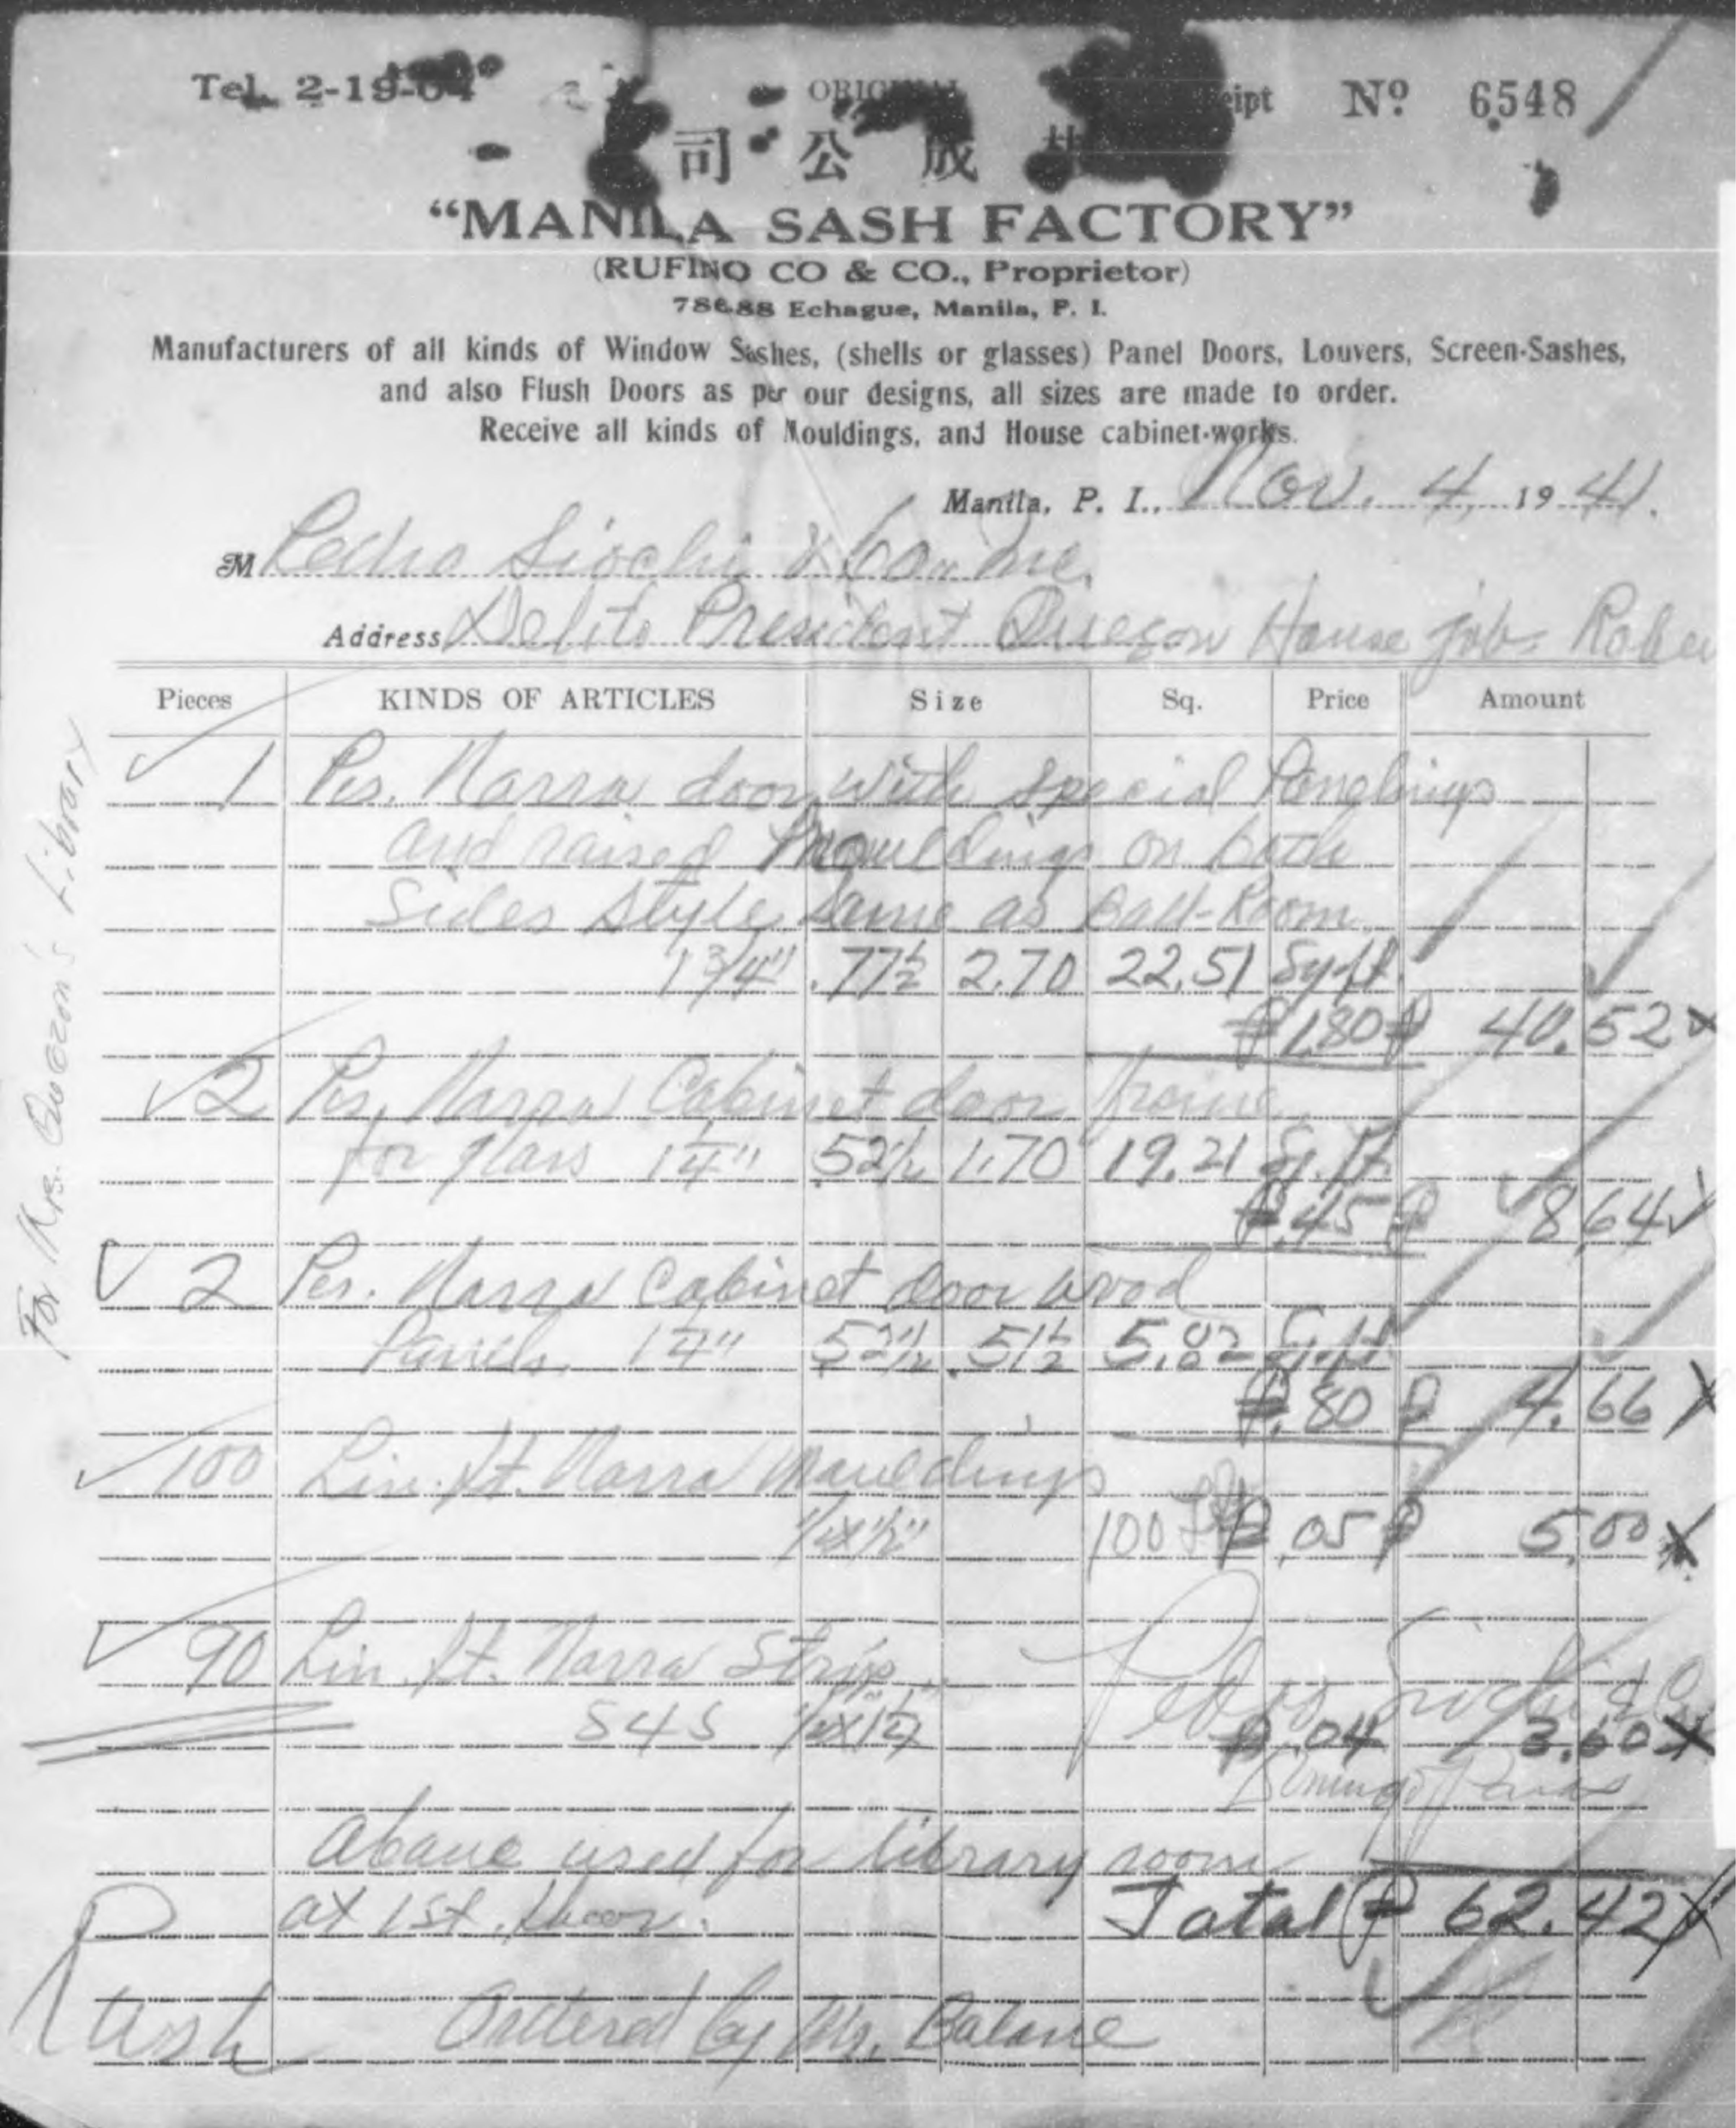 Tel. 2-19-64 ORIGINAL Receipt Nº 6548
司 公 成
“MANILA SASH FACTORY”
(RUFINO CO & CO., Proprietor)
786-88 Echague, Manila, P. I.
Manufacturers of all kinds of Window Sashes, (shells or glasses) Panel Doors, Louvers, Screen-Sashes,
and also Flush Doors as per our designs, all sizes are made to order.
Receive all kinds of Mouldings, and House cabinet-works.
Manila, P. I., Nov. 4, 1941.
M Pedro Siochi & Co. Inc.
Address President Quezon House job
Pieces KINDS OF ARTICLES Size Sq. Price Amount
1 Pcs. Narra door with special Panelings
and raised Mouldings on both
Sides Style Same as Ball-Room
1 3/4" .77½ 2.70 22.51 Sq ft.
₱1.80 ₱ 40.52
2 Pcs. Narra Cabinet door frame
for glass 1¼" .52½ 1.70 19.21 Sq. ft.
₱.45 ₱ 8.64
2 Pcs. Narra Cabinet door wood
Panels. 1¼" .52½ .51½ 5.82 Sq. ft
₱.80 ₱ 4.66
100 Lin. ft. Narra Mouldings
½"x½" 100 ₱.05 ₱ 5.00
90 Lin. ft. Narra Strips
S4S ½"x1½" ₱.04 3.60
Pedro Siochi & Co.
Domingo
above used for library room
at 1st. floor. Total ₱ 62.42
Rush Ordered by Mr. Balane
For Mrs. Quezon's Library